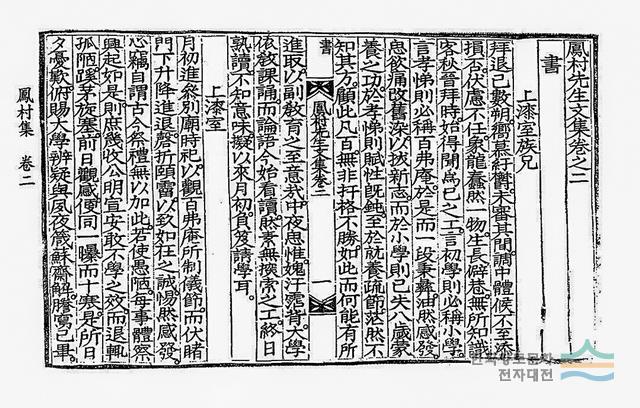 鳳村先生文集卷之二
書
上漆室族兄
拜退已數朔鄕慕紆鬱未審其間調中體候不至添
損否伏慮不任象龍蠢然一物生長僻巷無所知識
客秋晉拜時始得聞爲己之工言初學則必稱小學
言孝悌則必稱百弗庵於是而一段秉彝油然感發
思欲痛改舊染以拔新志而於小學則已失八歲蒙
養之功於孝悌則賦性旣鈍至於就養疏節茫然不
知其方顧此凡百無非扞格不勝如此而何能有所
鳳村先生文集卷二
一
書
進取以副敎育之至意哉中夜思惟愧汗霑背大學
依敎課誦而論語今始看讀然素無探索之工終日
熟讀不知意味擬以來月初負笈請學耳
上漆室
月初進參別廟時祀以觀百弗庵所制儀節而伏睹
門下升降進退聲折頤霤以致如在之誠惕然感發
心竊自謂古今祭禮無以加此若使愚陋每事體察
興起如是則庶幾收公明宣安敢不學之效而退輒
孤陋蹊茅旋塞前日觀感便同一曝而十寒是所日
夕憂歎俯賜大學辨疑與夙夜箴蘇齋解謄寫已畢
鳳村集 卷二
한국향토문화
전자대전